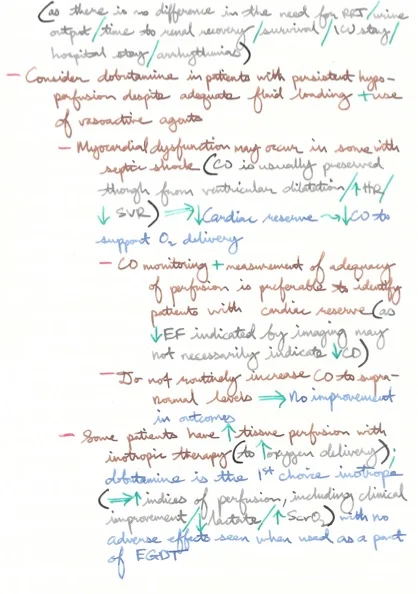 (as there is no difference in the need for RRT/urine
output/time to renal recovery/survival/ICU stay/
hospital stay/arrhythmias)
– Consider dobutamine in patients with persistent hypo-
perfusion despite adequate fluid loading + use
of vasoactive agents
– Myocardial dysfunction may occur in some with
septic shock (CO is usually preserved
though from ventricular dilatation/↑HR/
↓SVR) ⇒ ↓Cardiac reserve ⇝ ↓CO to
support O₂ delivery
– CO monitoring + measurement of adequacy
of perfusion is preferable to identify
patients with cardiac reserve (as
↓EF indicated by imaging may
not necessarily indicate ↓CO)
– Do not routinely increase CO to supra-
normal levels ⇒ No improvement
in outcomes
– Some patients have ↑tissue perfusion with
inotropic therapy (to ↑oxygen delivery);
dobutamine is the 1st choice inotrope
(⇒ ↑indices of perfusion, including clinical
improvement/↓lactate/↑ScvO₂) with no
adverse effects seen when used as a part
of EGDT